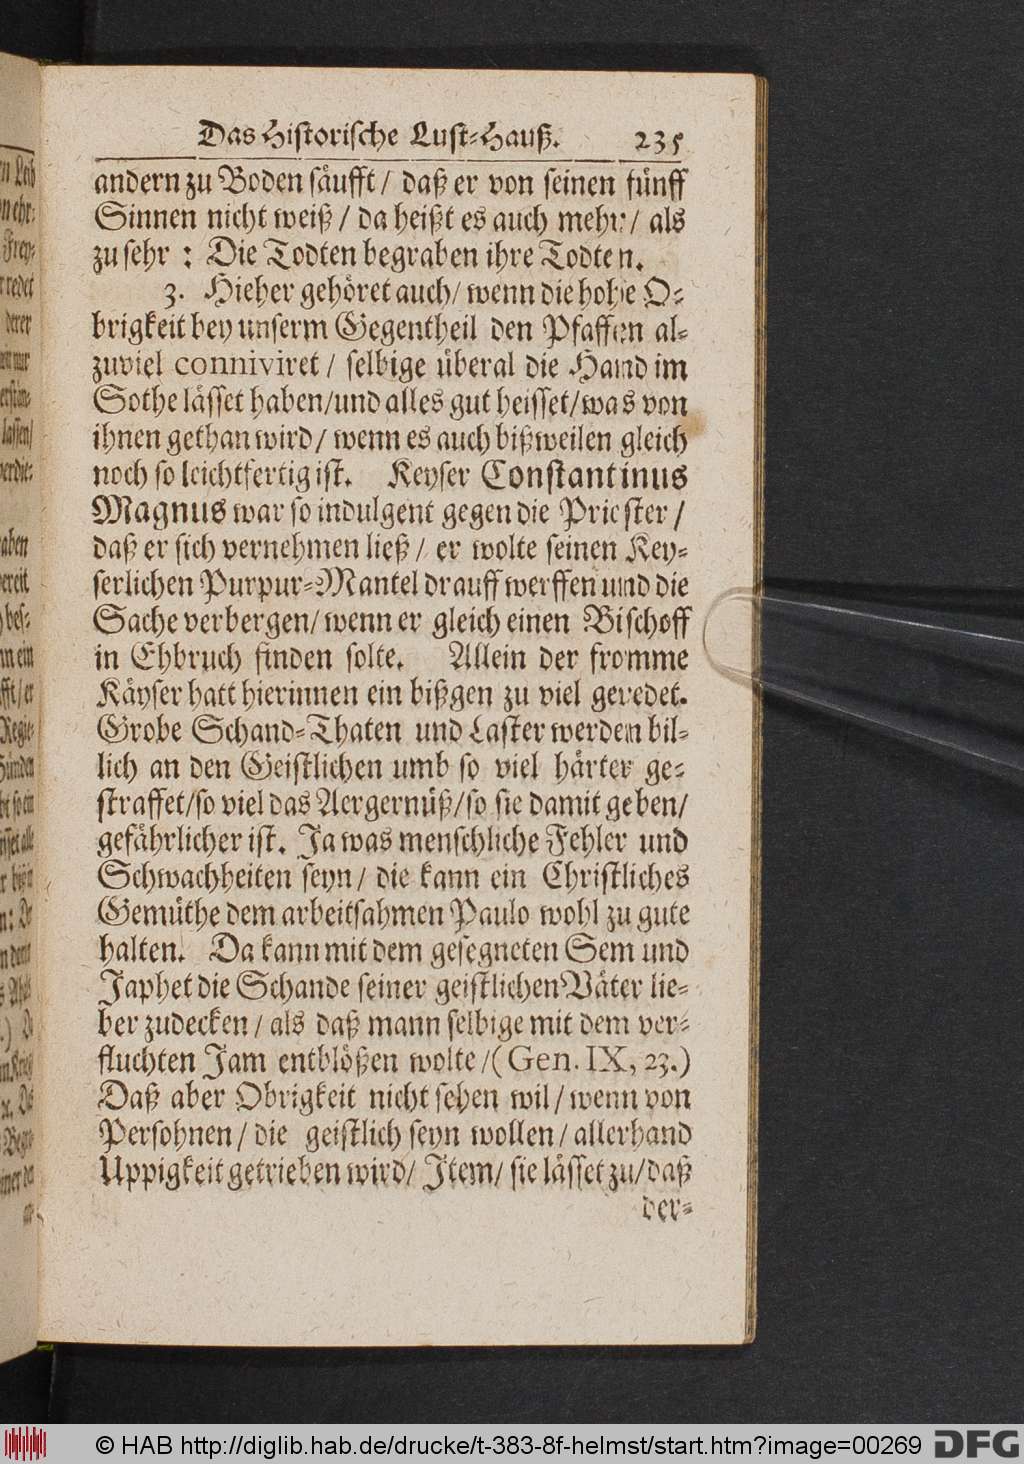 Das Historische Lust-Hauß. 235
andern zu Boden säufft / daß er von seinen fünff
Sinnen nicht weiß / da heißt es auch mehr / als
zu sehr : Die Todten begraben ihre Todten.
3. Hieher gehöret auch / wenn die hohe O-
brigkeit bey unserm Gegentheil den Pfaffen al-
zuviel conniviret / selbige überal die Hand im
Sothe lässet haben/und alles gut heisset/was von
ihnen gethan wird / wenn es auch bißweilen gleich
noch so leichtfertig ist. Keyser Constantinus
Magnus war so indulgent gegen die Priester /
daß er sich vernehmen ließ / er wolte seinen Key-
serlichen Purpur-Mantel drauff werffen und die
Sache verbergen/ wenn er gleich einen Bischoff
in Ehbruch finden solte. Allein der fromme
Käyser hatt hierinnen ein bißgen zu viel geredet.
Grobe Schand-Thaten und Laster werden bil-
lich an den Geistlichen umb so viel härter ge-
straffet/so viel das Aergernüß/so sie damit geben/
gefährlicher ist. Ja was menschliche Fehler und
Schwachheiten seyn / die kann ein Christliches
Gemüthe dem arbeitsahmen Paulo wohl zu gute
halten. Da kann mit dem gesegneten Sem und
Japhet die Schande seiner geistlichen Väter lie-
ber zudecken / als daß mann selbige mit dem ver-
fluchten Jam entblößen wolte /(Gen. IX, 23.)
Daß aber Obrigkeit nicht sehen wil / wenn von
Persohnen / die geistlich seyn wollen / allerhand
Uppigkeit getrieben wird/ Item/ sie lässet zu/daß
der-
© HAB http://diglib.hab.de/drucke/t-383-8f-helmst/start.htm?image=00269 DFG